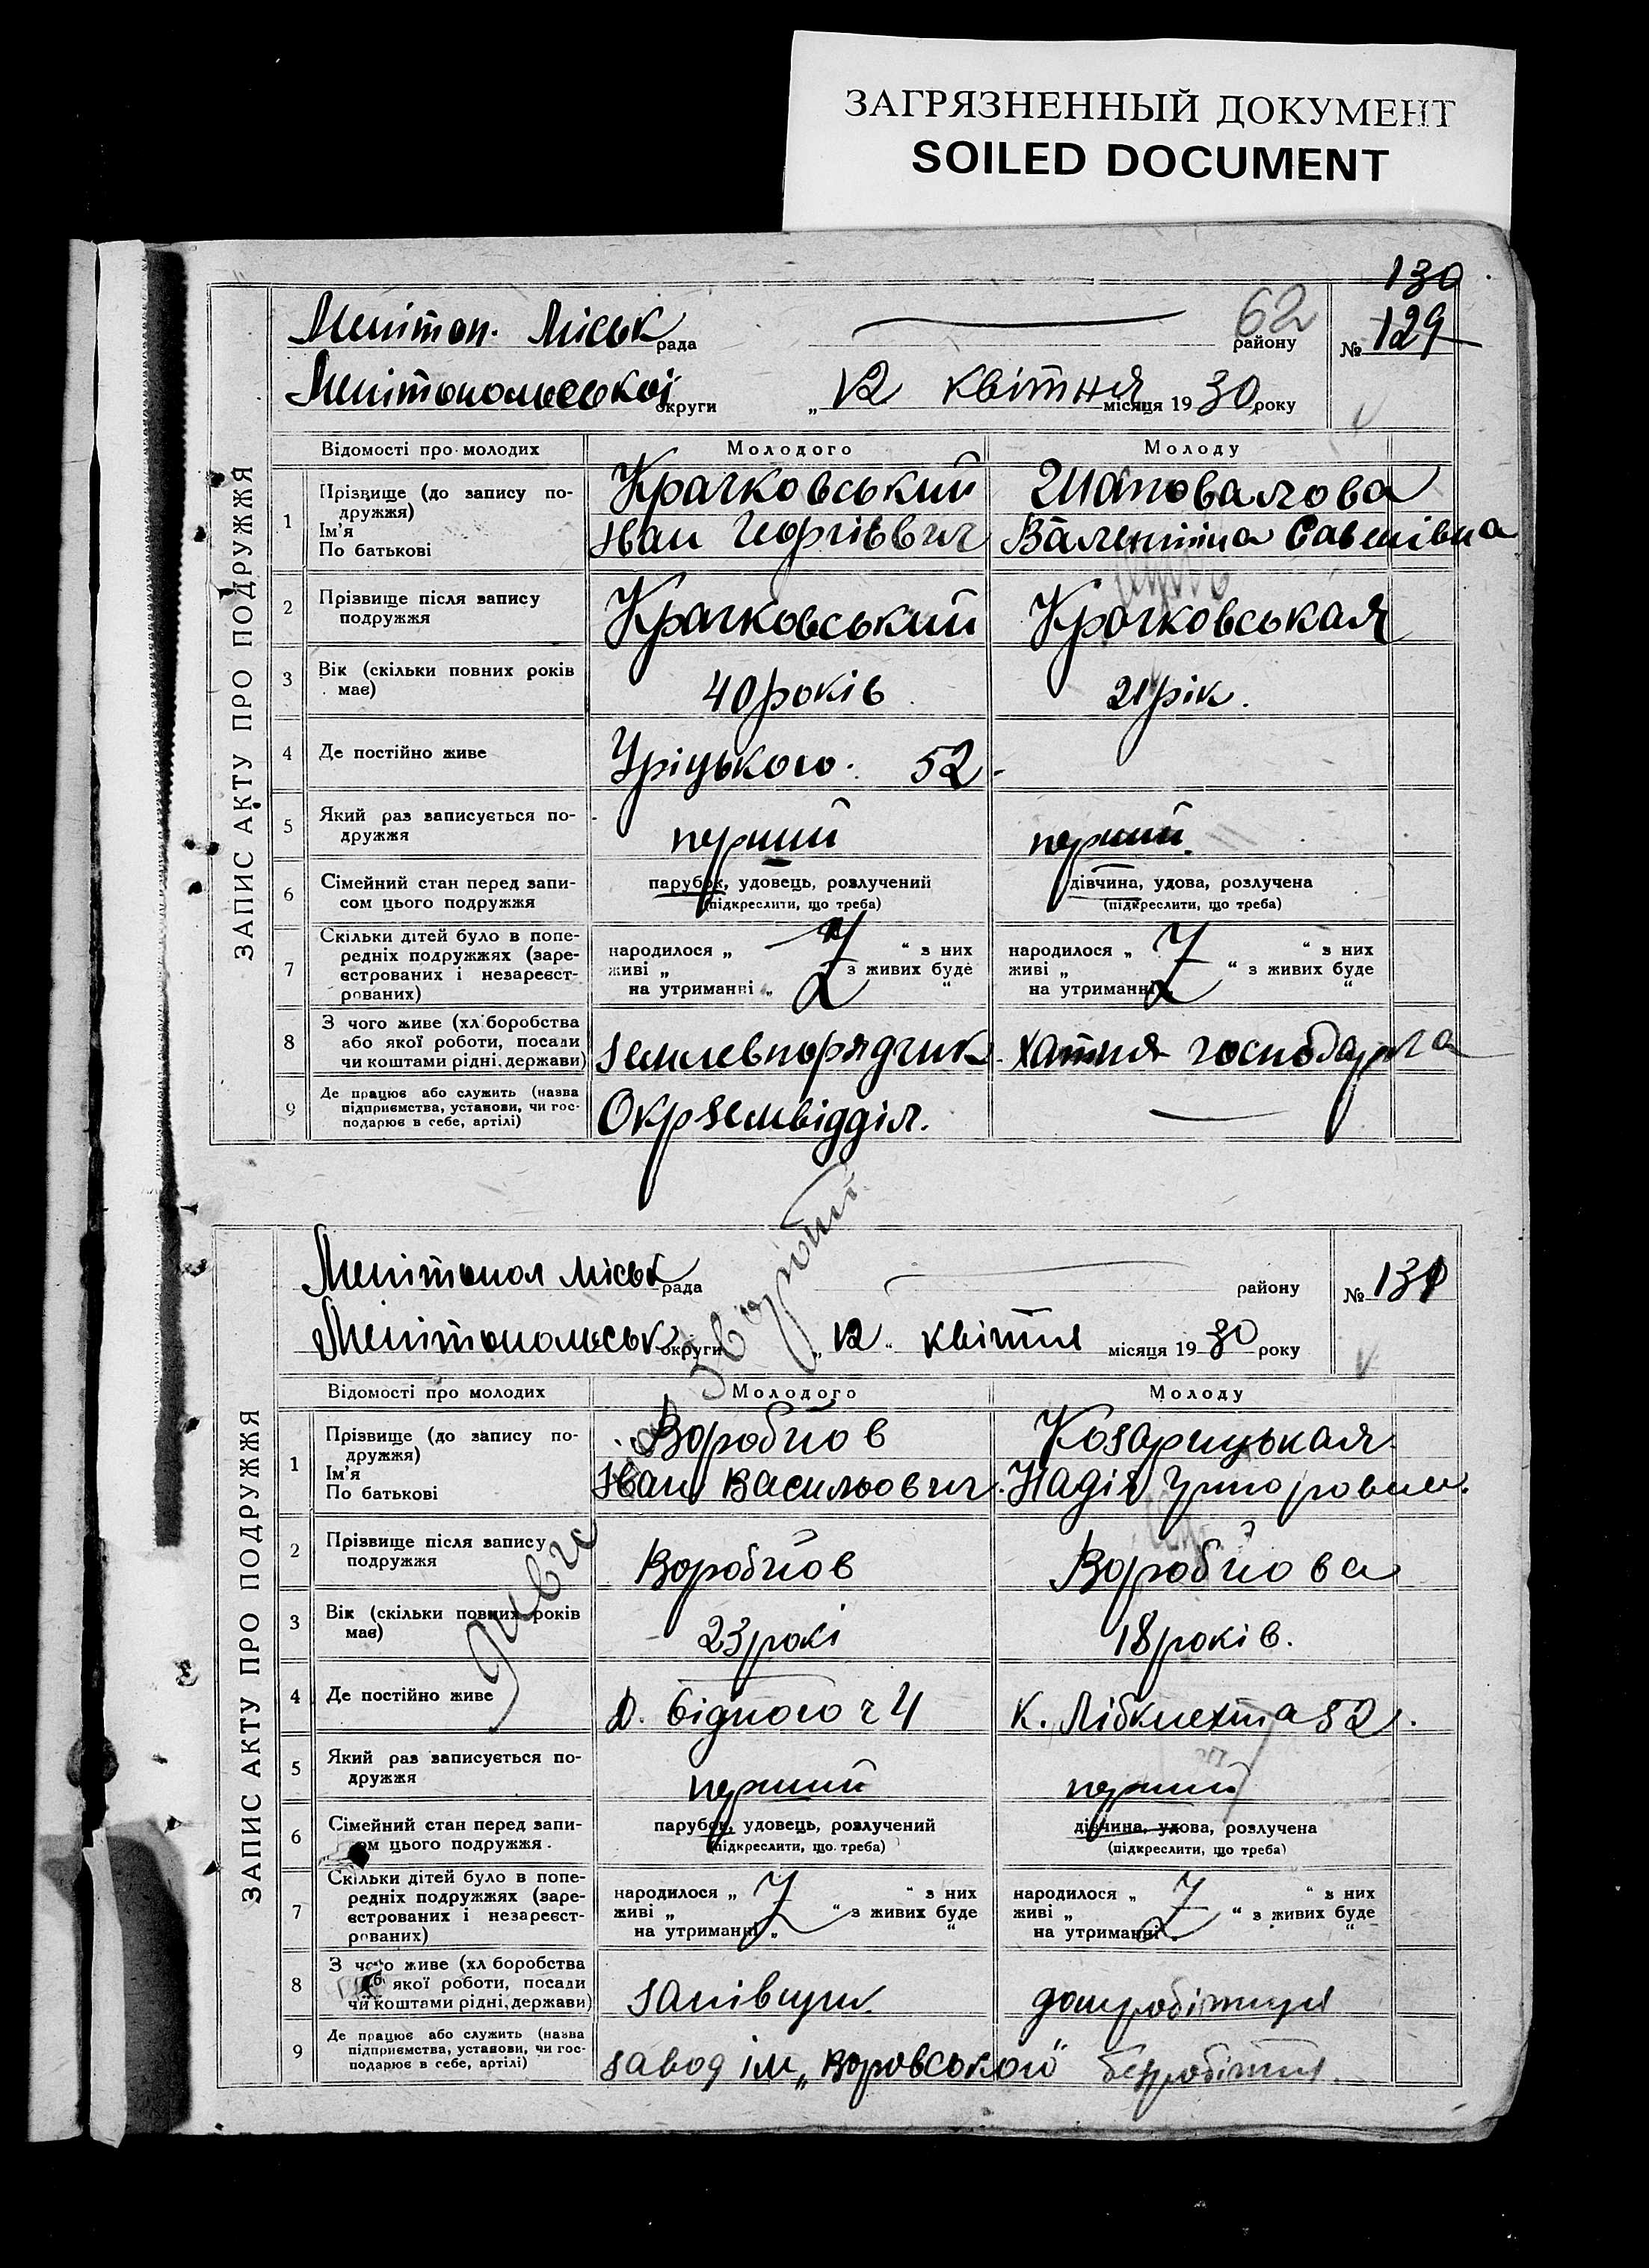 ЗАГРЯЗНЕННЫЙ ДОКУМЕНТ
SOILED DOCUMENT
130
ЗАПИС АКТУ ПРО ПОДРУЖЖЯ
Мелітоп. Міськ рада 62 району № 129
Мелітопольської округи „12 квітня місяця 1930 року
Відомості про молодих Молодого Молоду
1 Прізвище (до запису по- Крачковський Шаповалова
дружжя)
Ім'я Іван Георгієвич Валентіна Савелівна
По батькові
2 Прізвище після запису Крачковський Крачковськая
подружжя
3 Вік (скільки повних років 40 років 21 рік.
має)
4 Де постійно живе Уріцького 52
5 Який раз записується по- перший перший
дружжя
6 Сімейний стан перед запи- парубок, удовець, розлучений дівчина, удова, розлучена
сом цього подружжя (підкреслити, що треба) (підкреслити, що треба)
7 Скільки дітей було в попе- народилося „ “ з них народилося „ “ з них
редніх подружжях (заре- живі „ з живих буде живі „ “ з живих буде
єстрованих і незареєст- на утриманні „ “ на утриманні „ “
рованих)
8 З чого живе (хліборобства землевпорядчик. хатня господарка
або якої роботи, посади
чи коштами рідні, держави)
9 Де працює або служить (назва Окрземвідділ.
підприємства, установи, чи гос-
подарює в себе, артілі)
ЗАПИС АКТУ ПРО ПОДРУЖЖЯ
Мелітопол міськ рада району № 131
Мелітопольськ округи „12“ квітня місяця 1930 року
Відомості про молодих Молодого Молоду
1 Прізвище (до запису по- Воробйов Козарицькая
дружжя)
Ім'я Іван Васильович. Надія
По батькові
2 Прізвище після запису Воробйов Воробйова
подружжя
3 Вік (скільки повних років 23 рокі 18 років.
має)
4 Де постійно живе Д. Бідного 24 К. Лібкнехта 52.
5 Який раз записується по- перший перший
дружжя
6 Сімейний стан перед запи- парубок, удовець, розлучений дівчина, удова, розлучена
сом цього подружжя. (підкреслити, що треба) (підкреслити, що треба)
7 Скільки дітей було в попе- народилося „ “ з них народилося „ “ з них
редніх подружжях (заре- живі „ “ з живих буде живі „ “ з живих буде
єстрованих і незареєст- на утриманні „ “ на утриманні „ “
рованих)
8 З чого живе (хліборобства домробітниця
або якої роботи, посади
чи коштами рідні, держави)
9 Де працює або служить (назва завод ім „Воровського“ безробітня.
підприємства, установи, чи гос-
подарює в себе, артілі)